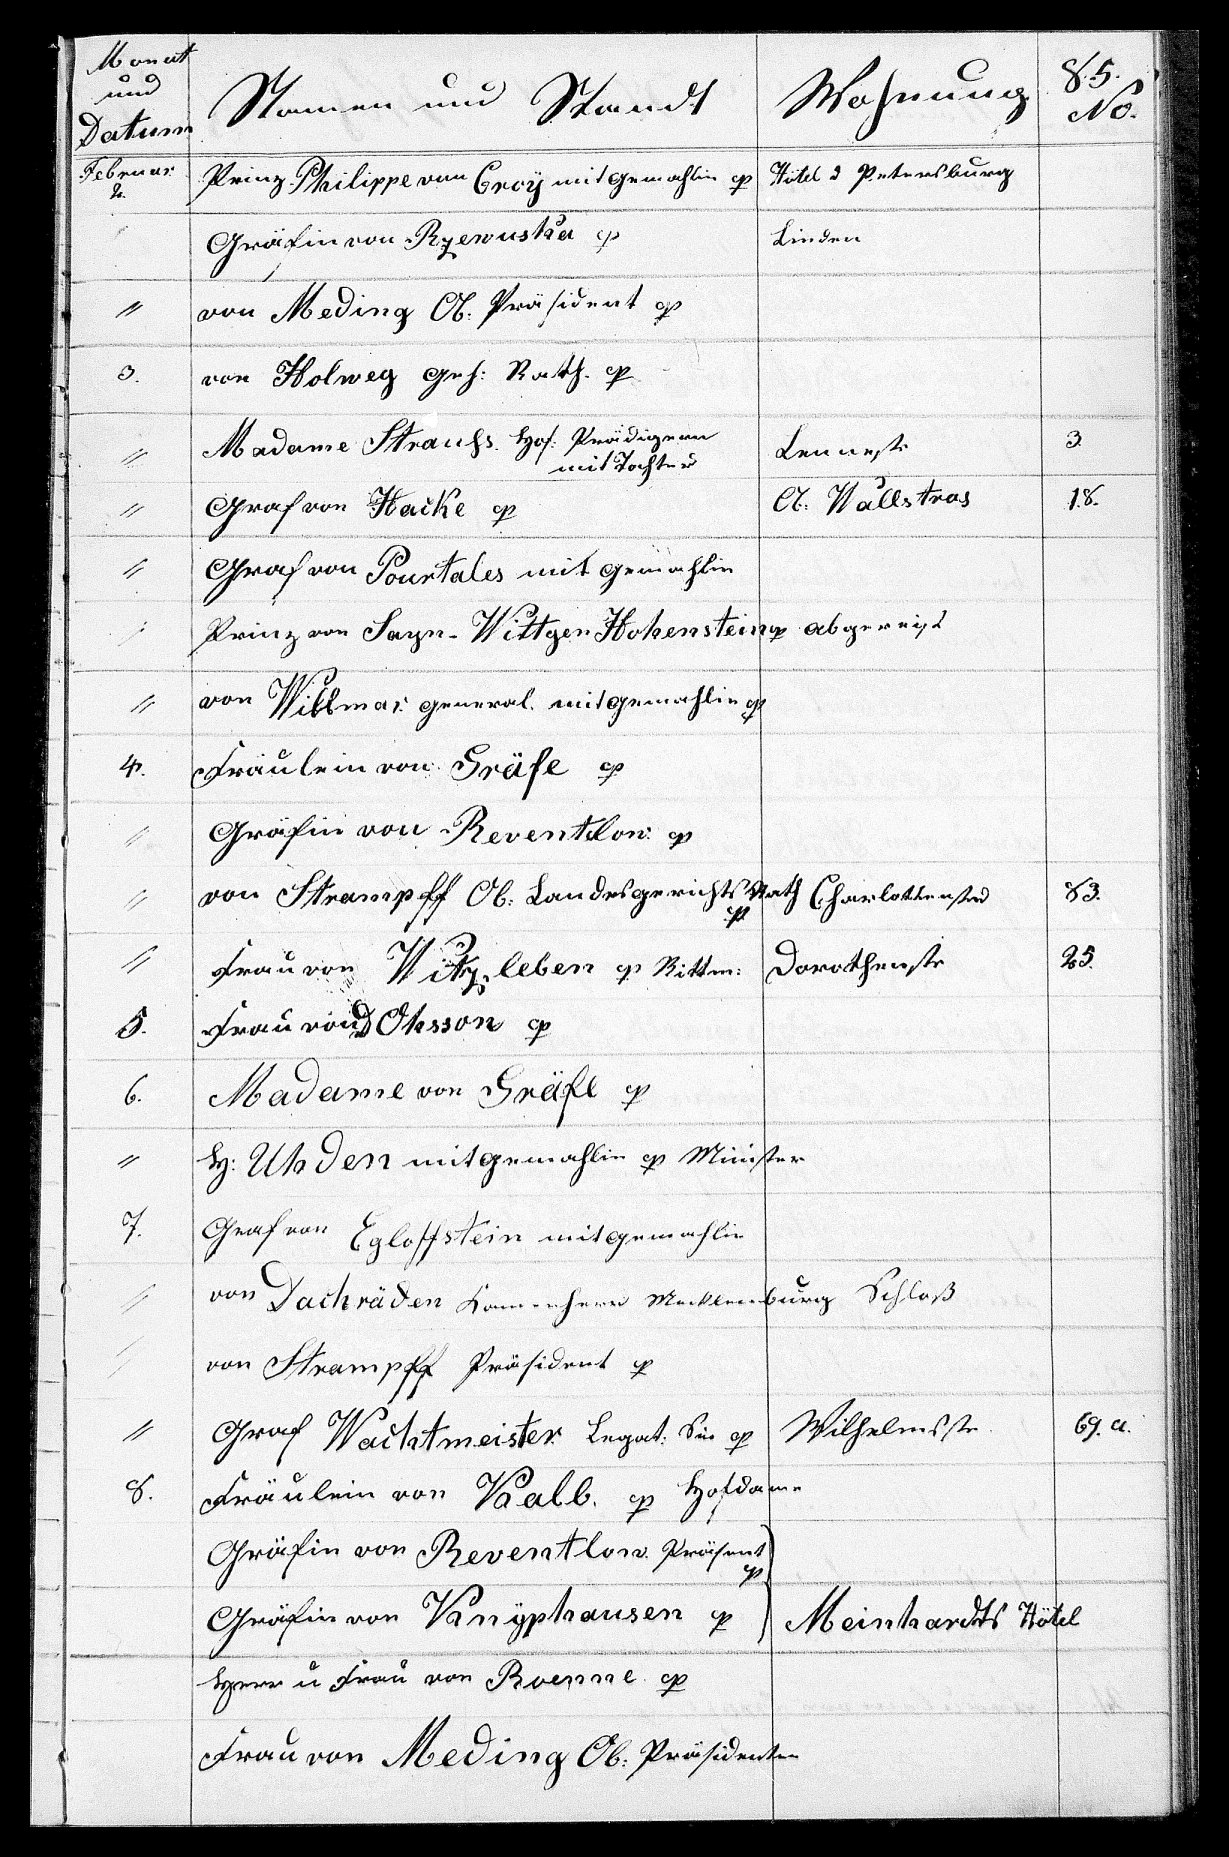 Monat und Datum Namen und Standt Wohnung 85. No.
Februar 2. Prinz Philippe von Croÿ mit gemahlin p Hôtel d Petersburg
Gräfin von Rzewuska p Linden
" von Meding Ob: Präsident p
3. von Holweg geh: Rath. p
" Madame Strauss. Hof: Prädigern mit Tochter Lennestr 3.
" Graf von Hacke p O. Wallstras 18.
" Graf von Pourtales mit gemahlin
" Prinz von Sayn-Wittgen Hohenstein p abgereist
" von Willmar. general. mit gemahlin p
4. Fräulein von Gräfe p
" Gräfin von Reventlow. p
" von Strampff Ob: Landesgerichts Rath p Charlottenstr 83.
" Frau von Witzleben p Rittm: Dorothenstr 25.
5. Frau von D Ohsson p
6. Madame von Gräfe p
" H: Uhden mit gemahlin p Minister
7. Graf von Egloffstein mit gemahlin
" von Dachräden Kammerherr Mecklenburg Schloß
" von Strampff Präsident p
" Graf Wachtmeister. Legat: p Wilhelmsstr. 69. a.
8. Fräulein von Kalb. p Hofdame
Gräfin von Reventlow. Präsent p
Gräfin von Knÿphausen p Meinhardts Hôtel
Herr u Frau von Roenne. p
Frau von Meding Ob: Präsidenten